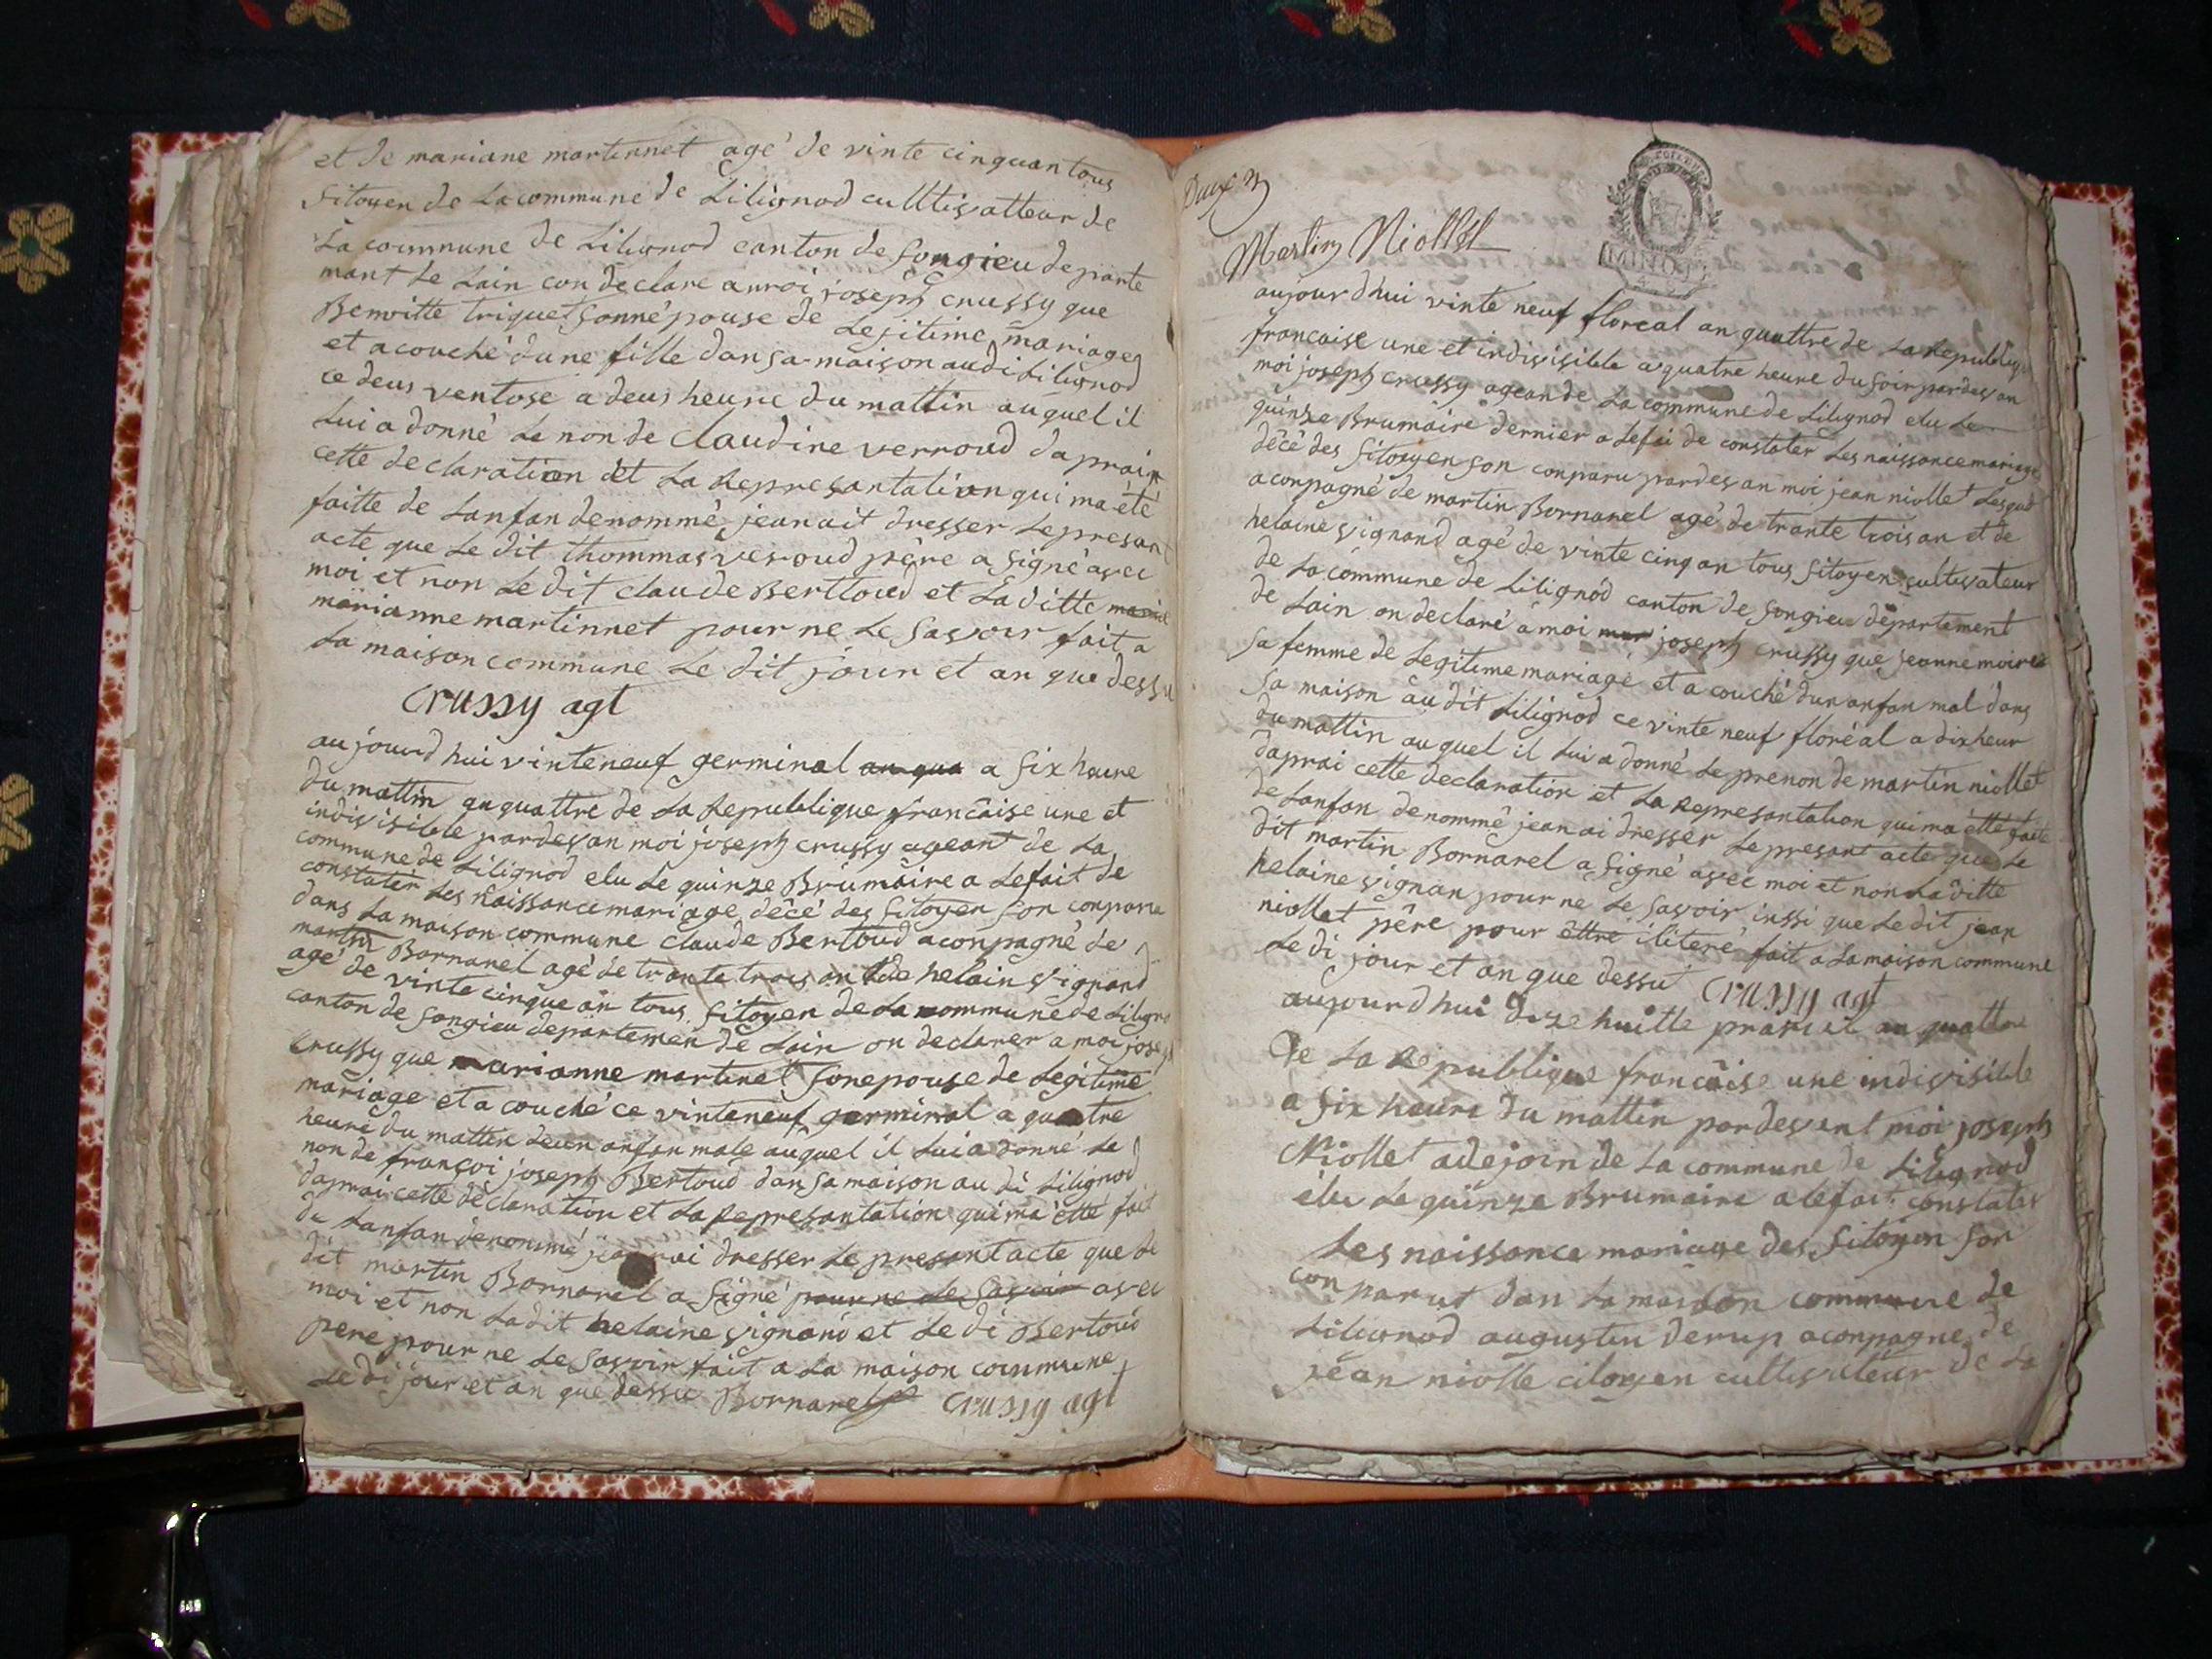 et de mariane martinnet agé de vinte cinquan tous
sitoyen de la commune de Lilignod culltivatteur de
La commune de Lilignod canton de songieu departe
mant de Lain con declare a moi joseph crussy que
Benoitte triquet sonnépouse de Lejitime mariage
et a couché dune fille dan sa maison audi Lilignod
ce deus ventose a deus heure du mattin auquel il
Lui a donné Le non de Claudine verroud daprai
cette declaration et La Represantation qui ma été
faitte de Lanfan denommé jeanait dresser Le presant
acte que Le dit thommas veroud père a signé avec
moi et non Le dit claude Berttoud et La ditte
marianne martinnet pour ne Le savoir fait a
La maison commune Le dit jour et an que dessu
Crussy agt
aujourd hui vinteneuf germinal an qua a six heure
du mattin an quattre de La Republique francaise une et
indivisible pardevan moi joseph crussy ageant de La
commune de Lilignod elu Le quinze Brumaire a Lefait de
constater Les naissance mariage décé des sitoyen son conparu
dans La maison commune claude Bertoud aconpagné de
martin Bornarel agé de trante trois an et de helain vignand
agé de vinte cinque an tous sitoyen de La commune de Lilign
canton de songieu departemen de Lain on declarer a moi jose
Crussy que marianne martinet sonepouse de Legitime
mariage et a couché ce vinteneuf germinal a quatre
heure du mattin deun anfan male auquel il Lui a donné Le
non de françoi joseph Bertoud dan sa maison au di Lilignod
daprai cette declaration et La Represantation qui ma été fait
de Lanfan denommé dresser Le presant acte que Le
dit martin Bornarel a signé pour ne Le savoir avec
moi et non Ladit helaine vignand et Le di Bertoud
pere pour ne Le savoir fait a La maison commune
Le di jour et an que dessu Bornarel Crussy agt
Martin Niollet
MINOT
aujourdhui vinte neuf floreal an quattre de La Republiq
francaise une et indivisible a quatre heure du soir pardevan
moi joseph crussy ageande La commune de Lilignod elu Le
quinze Brumaire dernier a Lefai de constater Les naissance mariage
décé des sitoyen son conparu pardevan moi jean niollet Lesquel
aconpagné de martin Bornarel agé de trante trois an et de
helaine vignand agé de vinte cinq an tous sitoyen cultivateur
de La commune de Lilignod canton de songieu departement
de Lain on declaré a moi joseph crussy que jeanne moiret
sa femme de Legitime mariage et a couché dun anfan mal dans
sa maison au dit Lilignod ce vinte neuf floréal a dix heur
du mattin auquel il Lui a donné Le prenon de martin niollet
daprai cette declaration et La Represantation qui ma étté faite
de Lanfan denommé jean ai dresser Le presant acte que Le
dit martin Bornarel a signé avec moi et non La ditte
helaine vignan pour ne Le savoir inssi que Le dit jean
niollet père pour éttre iliteré fait a La maison commune
Le di jour et an que dessu Crussy agt
aujourdhui dize huitte prarial an quattre
de La Republique francaise une indivisible
a six heure du mattin pardevent moi joseph
Niollet adejoin de La commune de Lilignod
élu Le quinze Brumaire a lefait constater
Les naissance mariage des sitoyen son
conparut dan La maison commune de
Lilignod augustin derup aconpagne de
jéan niolle citoyen cultivateur de La